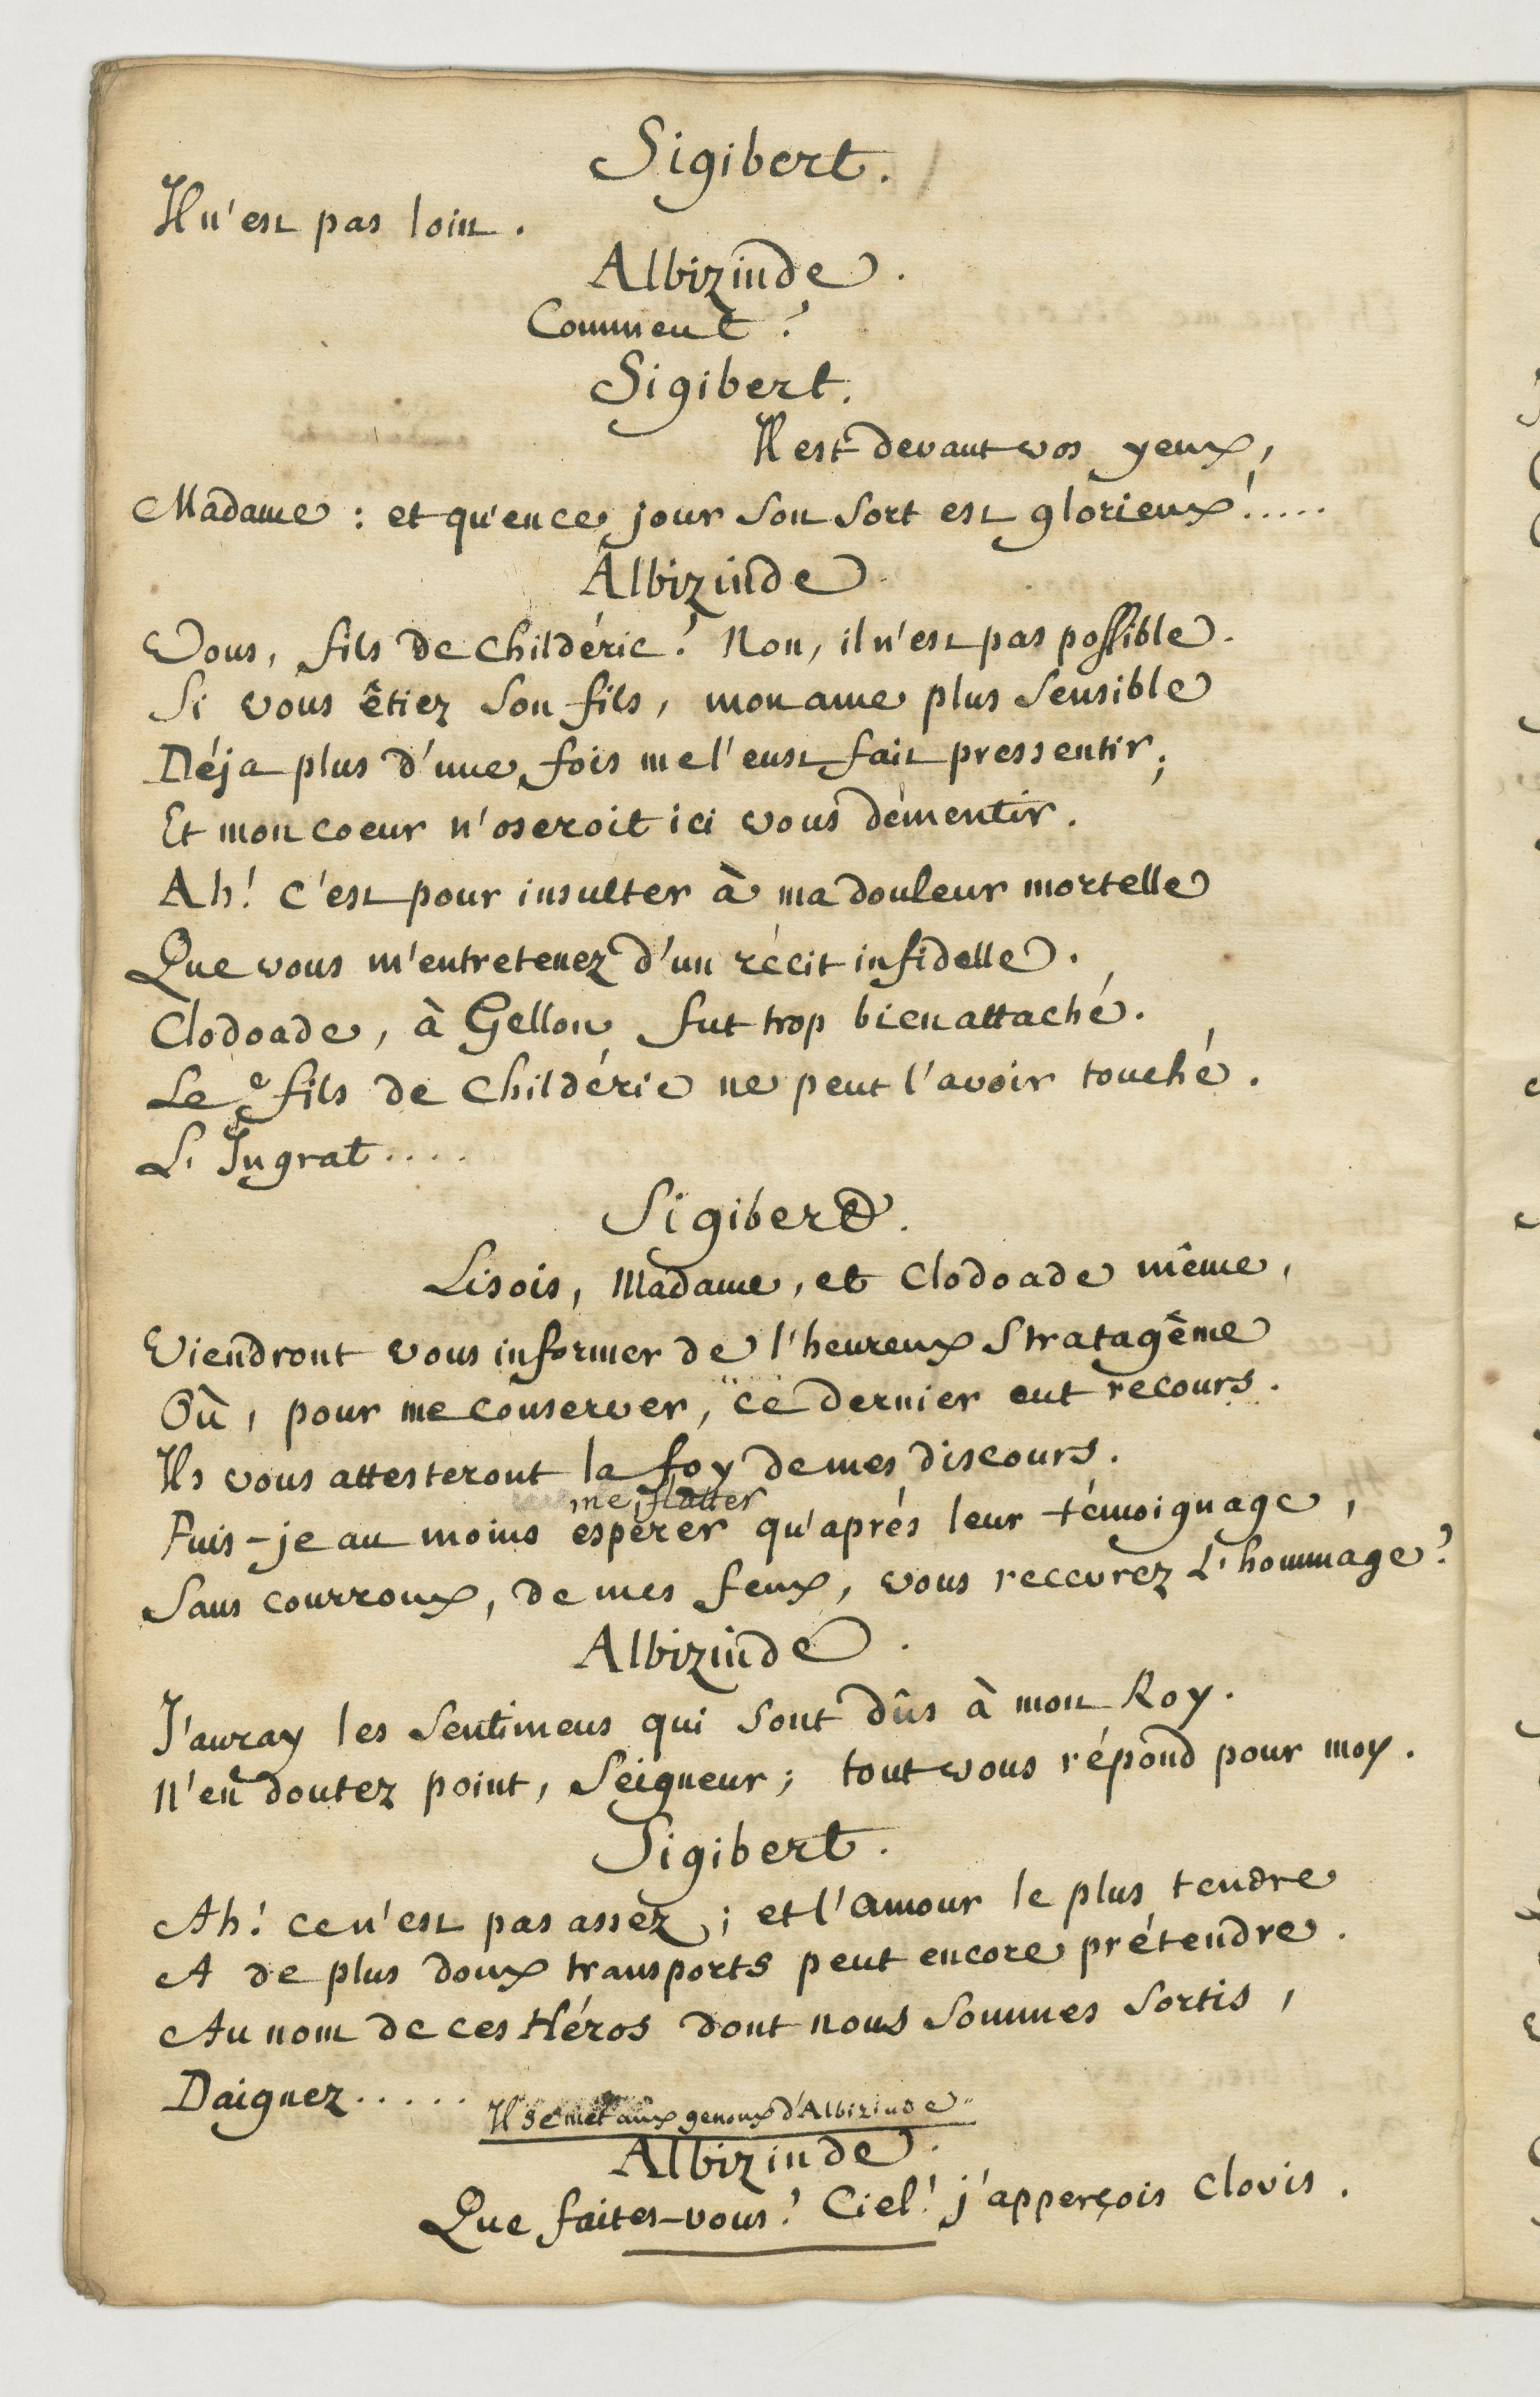 Sigibert.
Il n'est pas loin.
Albizinde.
Comment?
Sigibert.
Il est devant vos yeux,
Madame : et qu'en ce jour son sort est glorieux!.....
Albizinde
Vous, fils de Childéric! Non, il n'est pas possible.
Si vous êtiez son fils, mon ame plus sensible
Déja plus d'une fois me l'eust fait pressentir;
Et mon coeur n'oseroit ici vous démentir.
Ah! c'est pour insulter à ma douleur mortelle
Que vous m'entretenez d'un récit infidelle.
Clodoade, à Gellon fut trop bien attaché.
Le fils de Childéric ne peut l'avoir touché.
L'Ingrat....
Sigibert.
Lisois, Madame, et Clodoade même,
Viendront vous informer de l'heureux stratagême
Où, pour me conserver, ce dernier eut recours.
Ils vous attesteront la foy de mes discours.
me flatter
Puis-je au moins espérer qu'aprés leur témoignage,
Sans courroux, de mes feux, vous recevrez l'hommage?
Albizinde.
J'auray les sentimens qui sont dûs à mon Roy.
N'en doutez point, Seigneur; tout vous répond pour moy.
Sigibert.
Ah! ce n'est pas assez; et l'amour le plus tendre
A de plus doux transports peut encore prétendre.
Au nom de ces Héros dont nous sommes sortis,
Daignez.....
Il se met aux genoux d'Albizinde
Albizinde.
Que faites-vous? Ciel! j'apperçois Clovis.